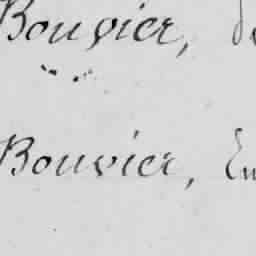 Bouvier,
Bouvier,